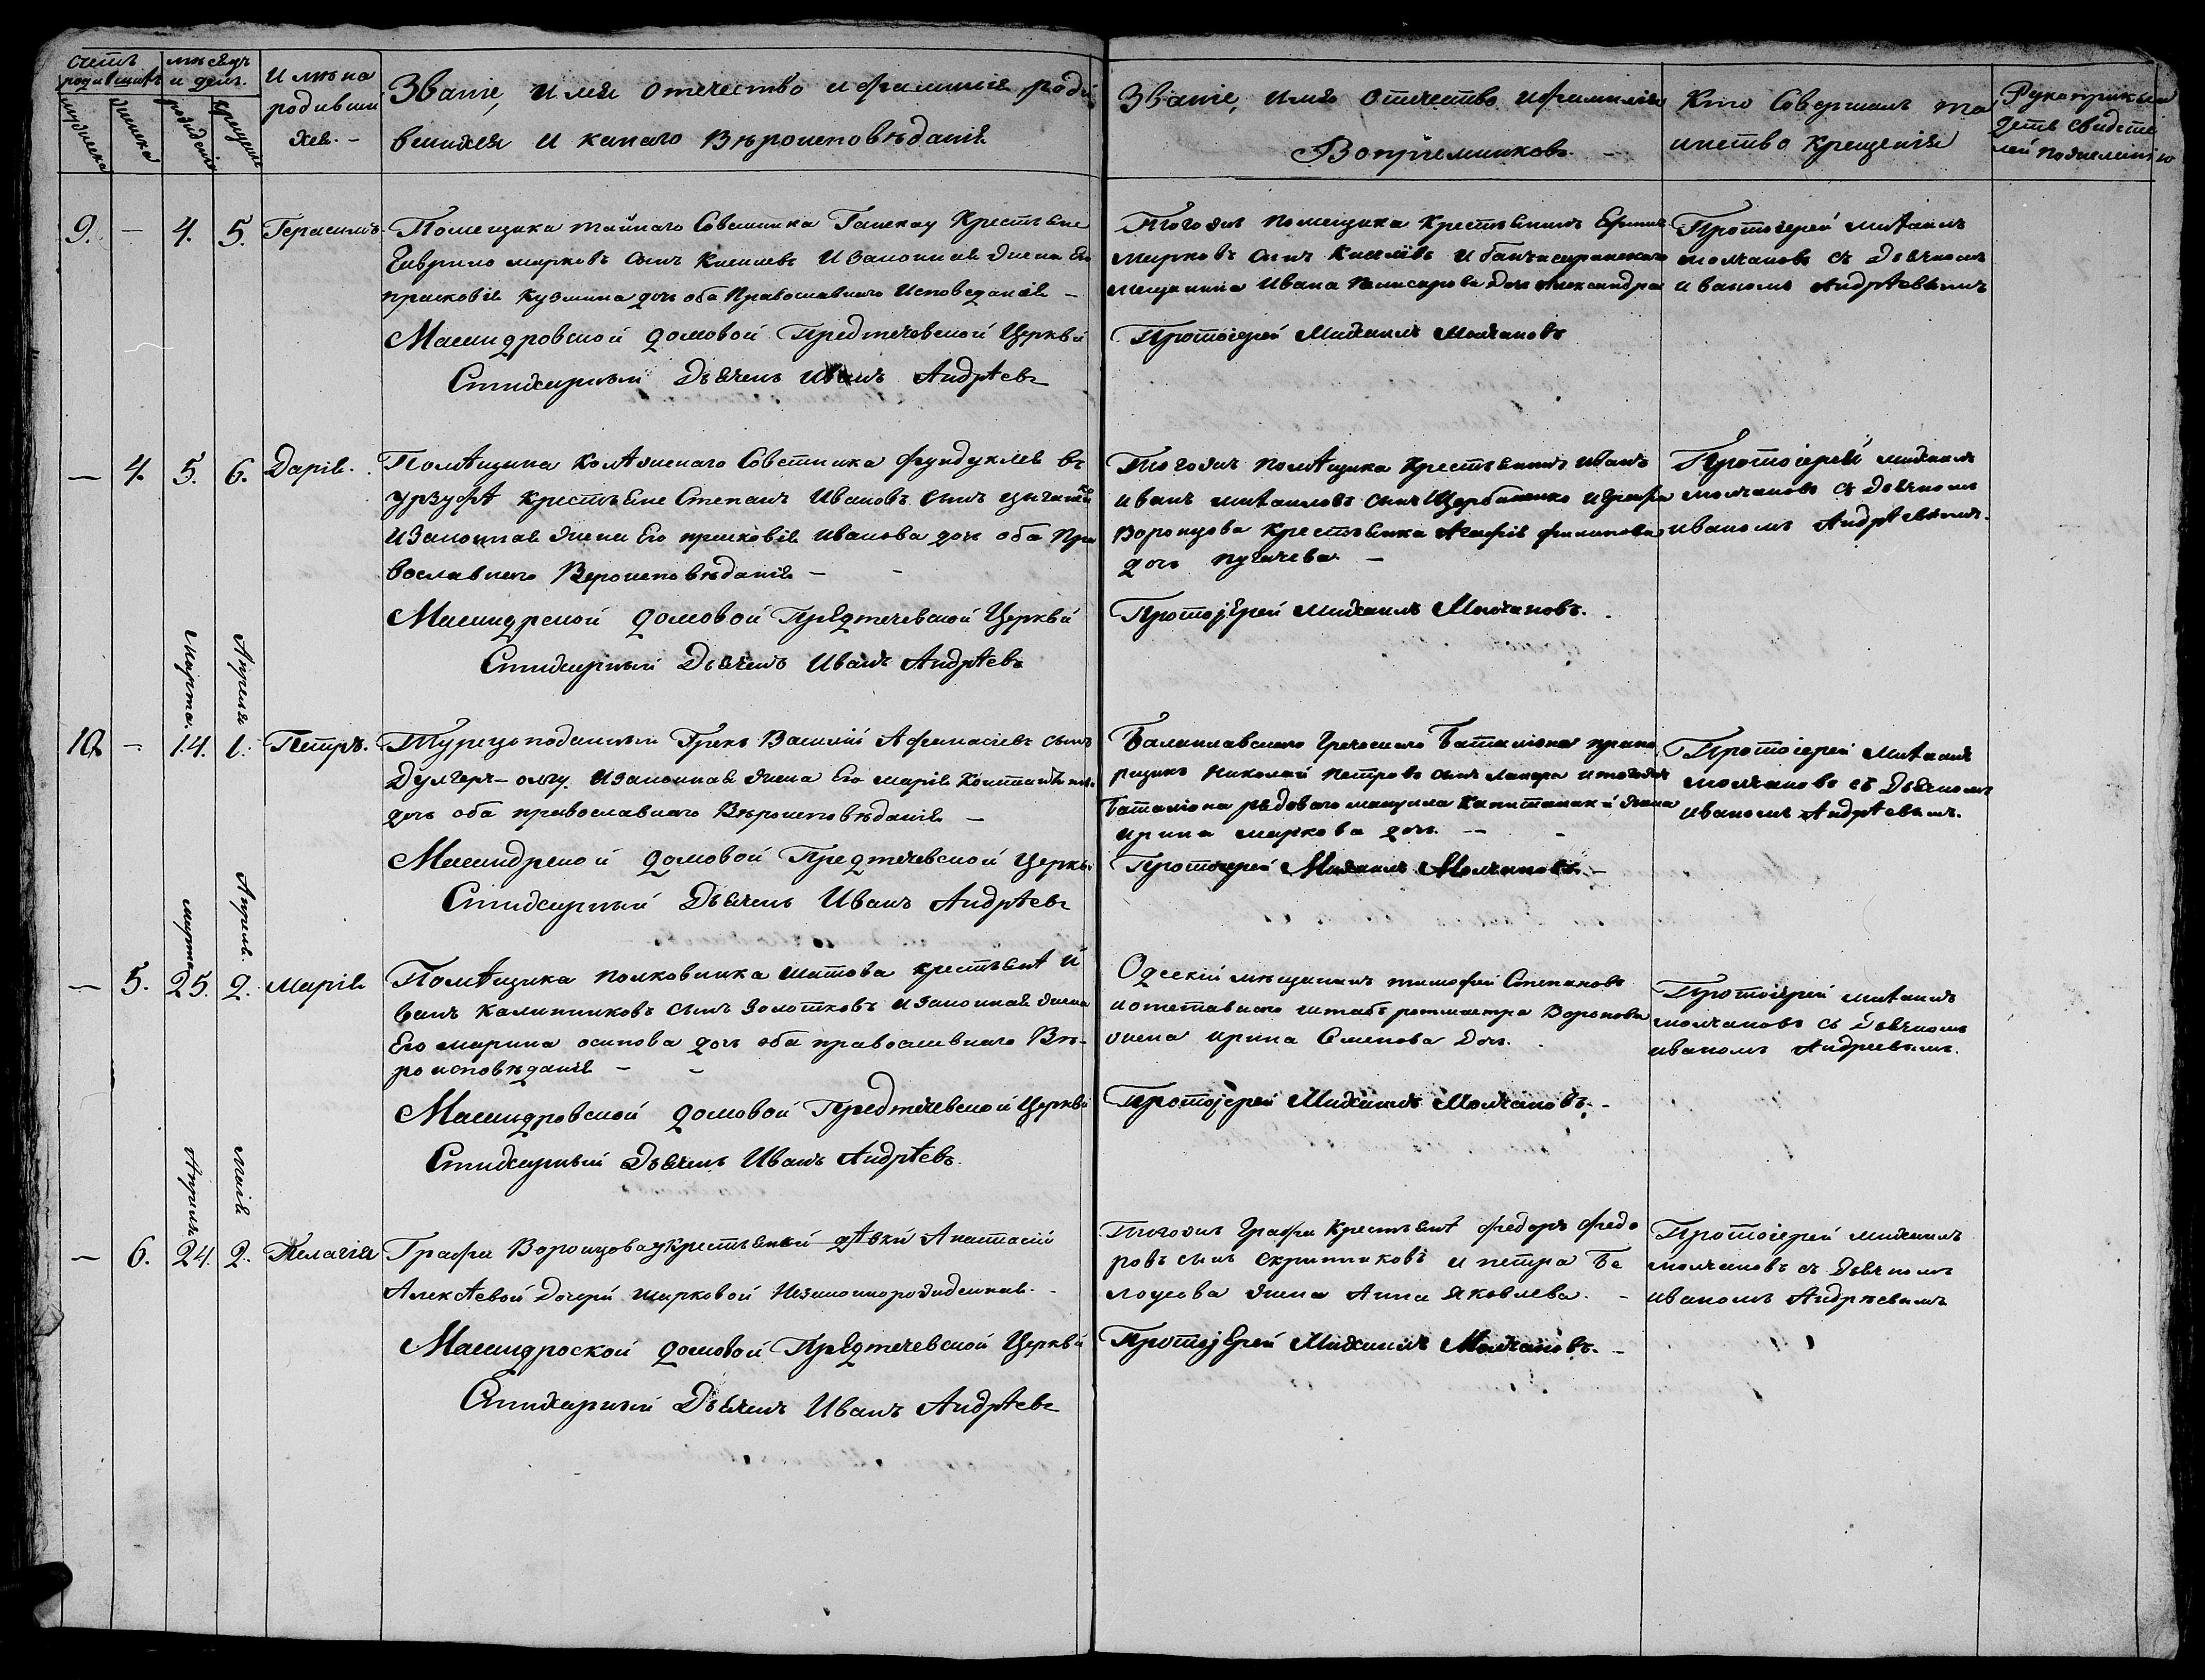 Счетъ родившихъ
мужеска
женска
мѣсяцъ и день.
рожденія
крещенія
Имѣна родивши хся. –
Званіе, Имя отечество и фамилія роди
вшихся и какаго Вѣроисповѣданія
Званіе, Имя Отечество и фамилія
Воспріемниковъ –
Кто Совершалъ та
инство крещенія
Рукоприкла
детв свидете
лей по желанію
9. – 4. 5. Герасимъ.
Помещика тайнаго Советника Крестьяне
Гаврило марковъ сынъ Киселевъ И Законная жена Его
прасковія Кузмина дочь оба Православнаго Исповеданія –
Масандровской домовой Предтечевской Церкви
Стихарный Дьячекъ Иванъ Андрѣевъ
Тогожъ помещика крестьянинъ Ефимъ
марковъ сынъ Киселівъ И бахчисарайскаго
мещанина Ивана дочь Александра
Протоіерей Михаилъ Молчановъ
Протоіерей михаилъ
молчановъ съ дьячкомъ
иваномъ Андрѣевымъ
– 4. 5. 6. Дарія.
Помѣщика Колѣжскаго Советника Фундуклея въ
урзуфѣ крестьяне Степанъ Ивановъ сынъ
И Законная жена Его прасковія иванова дочь оба Пра
вославнаго Вероисповѣданія – –
Масандрской домовой Предтечевской Церкви
Стихарный Дьячекъ Иванъ Андрѣевъ
Тогожъ помѣщика крестьянинъ иванъ
иванъ михаиловъ сынъ Щербаненко и графа
Воронцова Крестьянка Агафія филипова
дочь пугачева –
Протоjерей Михаилъ Молчановъ.
Протоіерей михаилъ
молчановъ съ дьячкомъ
иваномъ Андрѣевымъ.
Марта. Апреля
10 – 14. 1. Петръ.
Турецоподанный Грекъ Василій Афанасіевъ сынъ
Дулгеръ-оглу. И законная жена Его марія
дочь оба православнаго Вѣроисповѣданія –
Масандрской домовой Предтечевской церкви
Стихарный Дьячекъ Иванъ Андрѣевъ
Балаклавскаго Греческаго Баталіона прапо
рщикъ Николай Петровъ сынъ и тогожъ
баталіона рядоваго мануила жена
ирина маркова дочь. – –
Протоіерей Михаилъ Молчановъ –
Протоіерей Михаилъ
молчановъ съ Дьячкомъ
иваномъ Андрѣевымъ.
марта Апреля.
– 5. 25. 2. Марія
Помѣщика полковника шатова крестьянѣ И
ванъ Калинниковъ сынъ Золотковъ И законная жена
Его марина осипова дочь оба православнаго Вѣ-
роисповѣданія – –
Масандровской домовой Предтечевской Церкви
Стихарный Дьячекъ Иванъ Андрѣевъ.
Одескій мѣщанинъ тимофей Степановъ
и отставнаго штабъ ротмистра Воронова
жена ирина Семенова Дочь.
Протоjерей Михаилъ Молчановъ.
Протоіерей михаилъ
молчановъ съ Дьячкомъ
иваномъ Андреевымъ.
Апреля Маія
– 6. 24. 2. Пелагія
Графа Воронцова у крестьянской дѣвки Анастасіи
Алексѣевой Дочери шарковой Незаконнорожденная. –
Масандроской домовой Предтечевской Церкви
Стихарный Дьячекъ Иванъ Андрѣевъ
Тогожъ Графа Крестьянѣ федоръ федо
ровъ сынъ скрипниковъ и петра Бе
лоусова жена Анна Яковлева. –
Протоjерей Михаилъ Молчановъ. –
Протоіерей михаилъ
молчановъ съ дьячкомъ
иваномъ Андрѣевымъ